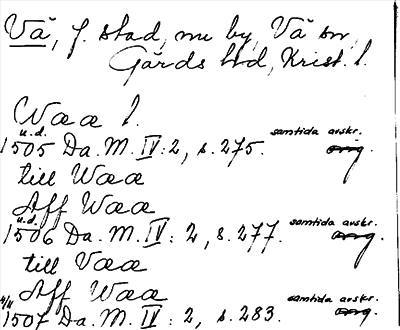 Vä, f. stad, nu by, Vä sn,
Gärds hd, Krist. l.
Waa l.
u.d. samtida avskr.
1505 Da. M. IV: 2, s. 275. orig.
till Waa
Aff Waa
u.d. samtida avskr.
1506 Da. M. IV: 2, s. 277. orig.
till Vaa
Aff Waa
samtida avskr.
1507 Da. M. IV: 2, s. 283. orig.